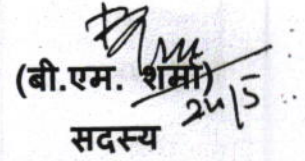 (बी.एम. शर्मा)
24/5
सदस्य